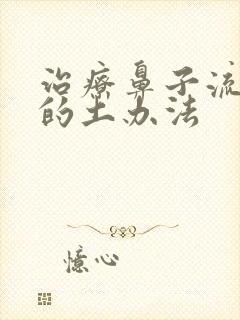 治疗鼻子流
的土办法
憶心